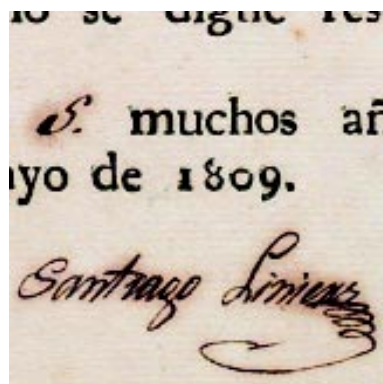 no se digne res
S. muchos añ
ayo de 1809.
Santiago Liniers